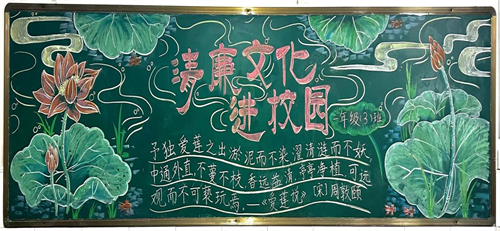 清廉文化
进校园
一年级(3)班
予独爱莲之出淤泥而不染,濯清涟而不妖,
中通外直,不蔓不枝,香远益清,亭亭净植,可远
观而不可亵玩焉。——《爱莲说》[宋]周敦颐